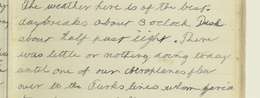 The weather here is of the best
daybreaks about 3 oclock Dusk
about half past eight. There
was little or nothing doing today
until one of our aeroplanes flew
over to the Turks lines when